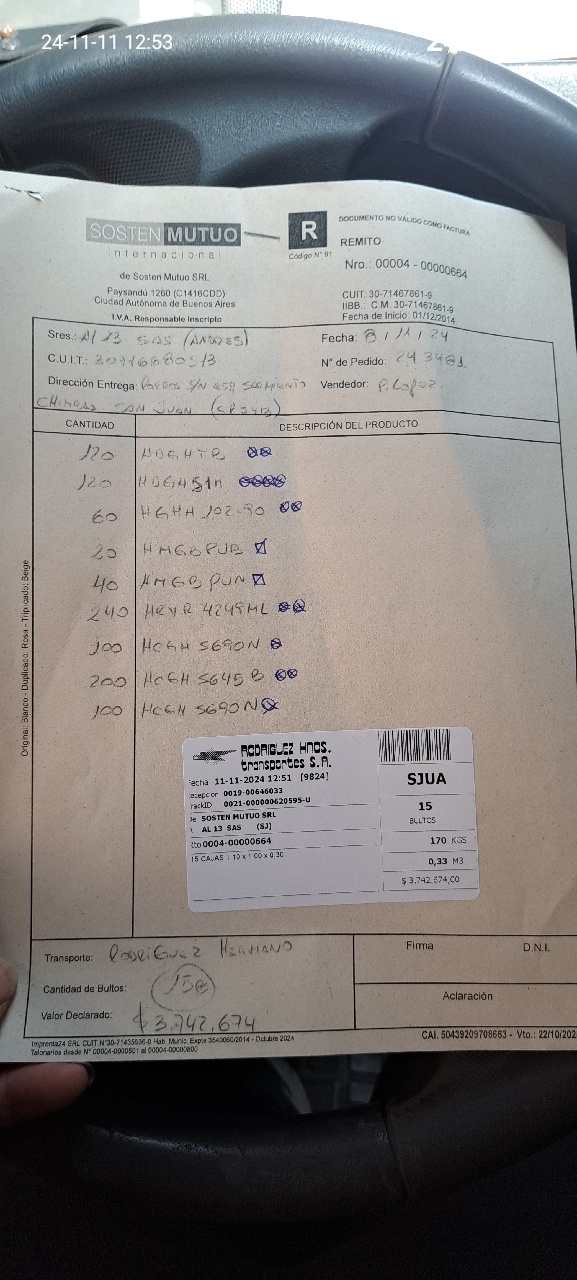 24-11-11 12:53
SOSTEN MUTUO
internacional
R
Código N° 91
DOCUMENTO NO VÁLIDO COMO FACTURA
REMITO
Nro.: 00004 - 00000664
de Sosten Mutuo SRL
Paysandú 1260 (C1416CDD)
Ciudad Autónoma de Buenos Aires
I.V.A. Responsable Inscripto
CUIT: 30-71467861-9
IIBB.: C.M. 30-71467861-9
Fecha de Inicio: 01/12/2014
Sres.: Al 13 SAS (ANDRES)
Fecha: 8/11/24
C.U.I.T.:
N° de Pedido: 243481
Dirección Entrega: S/N ESQ SARMIENTO
Vendedor: P. Lopez
CHIMBAS SAN JUAN
CANTIDAD DESCRIPCIÓN DEL PRODUCTO
120
120
60 HGHH 102-90
20 HMGBPUB
40 HMGBPUN
240 4249ML
100 HCGH S690N
200 HCGH S645B
100 HCGH S690N
RODRIGUEZ HNOS.
transportes S.A.
Fecha 11-11-2024 12:51 [9824]
0019-00646033
0021-000000620595-U
SOSTEN MUTUO SRL
AL 13 SAS (SJ)
0004-00000664
15 CAJAS 1 10 x 1 00 x 0,30
SJUA
15
BULTOS
170 KGS
0,33 M3
$ 3.742.674,00
Transporte: RODRIGUEZ HERMANO
Cantidad de Bultos: 15
Valor Declarado: $ 3.742.674
Firma D.N.I.
Aclaración
Original: Blanco - Duplicado: Rosa - Triplicado: Beige
Imprenta24 SRL CUIT N°30-71435636-0 Hab. Munic. Expte 3540060/2014 - Octubre 2024
Talonarios desde N° 00004-0000501 al 00004-00000800
CAI. 50439209708663 - Vto.: 22/10/202